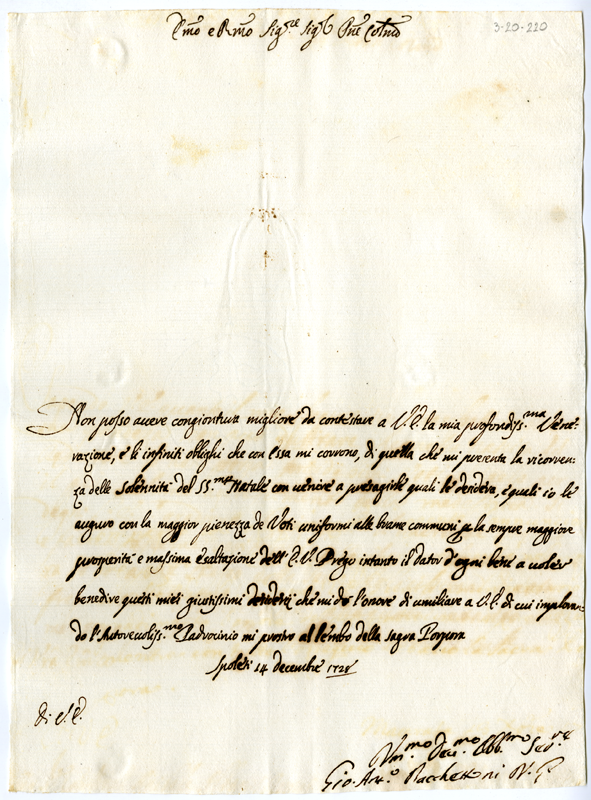 3-20-220
E.mo e R.mo Sig.re Sig.r P.ne Col.mo
Non posso avere congiontura migliore da contestare a V.E. la mia profondiss.ma Vene-
razione, e li infiniti oblighi che con essa mi corrono, di quella che mi presenta la ricorren-
za delle solennità del SS.mo Natale con venire a presagirle quali le desidera, e quali io le
auguro con la maggior pienezza de Voti uniformi alle brame communi p la sempre maggiore
prosperità e massima esaltazione dell' E.V. Prego intanto il dator d'ogni bene a voler
benedire questi miei giustissimi desiderj che mi do l'onore di umiliare a V.E. di cui imploran-
do l'Autorevoliss.mo Padrocinio mi prostro al lembo della sagra Porpora
Spoleti 14 decembre 1728
Di V.E.
Um.mo Dev.mo Obb.mo Ser.re
Gio. Ant.o Bacchettoni